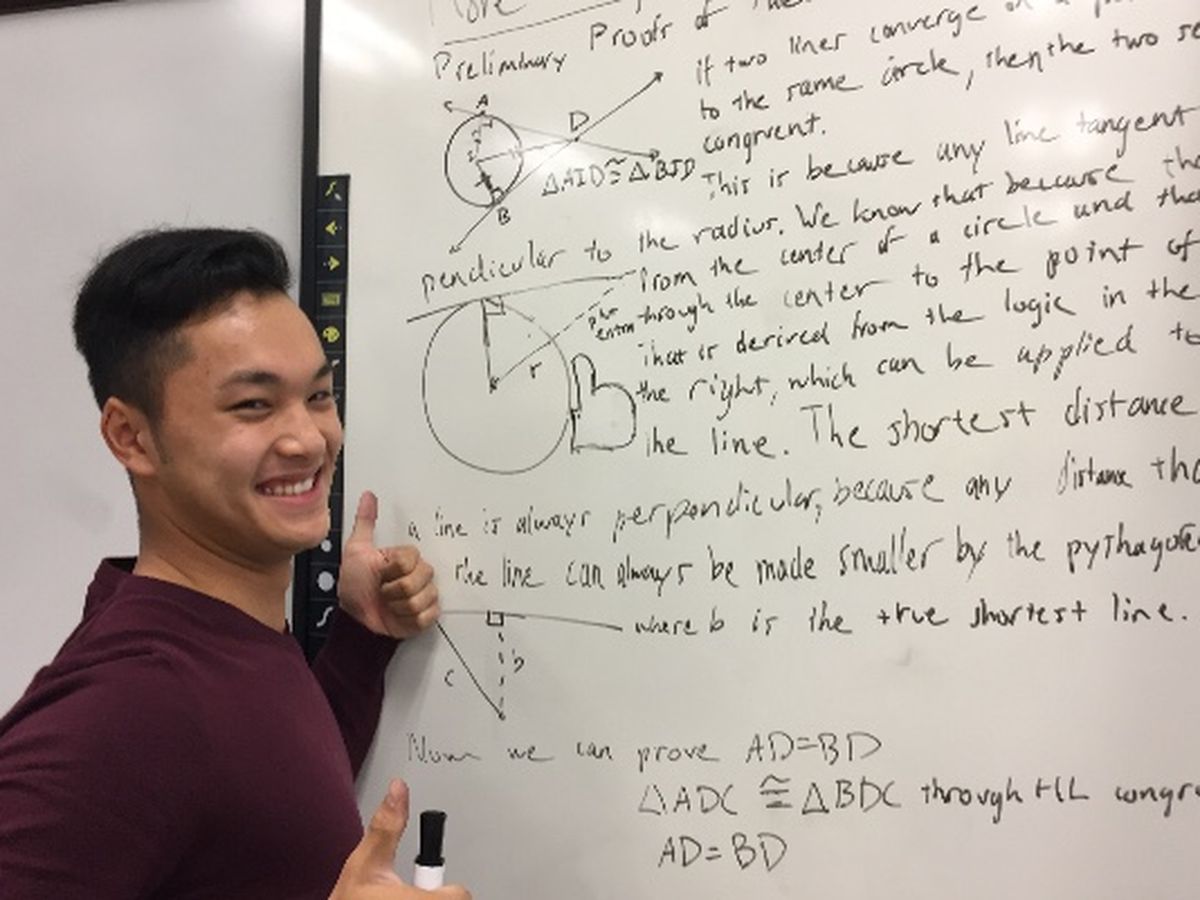 More
Preliminary Proofs of
A
D
B
△AID≅△BID
if two lines converge on a
to the same circle, then the two
congruent.
This is because any line tangent
pendicular to the radius. We know that because
from the center of a circle and
through the center to the point of
That is derived from the logic in the
the right, which can be applied to
the line. The shortest distance
r
a line is always perpendicular, because any distance
the line can always be made smaller by the
where b is the true shortest line.
c
b
Now we can prove AD=BD
△ADC ≅ △BDC through HL
AD=BD